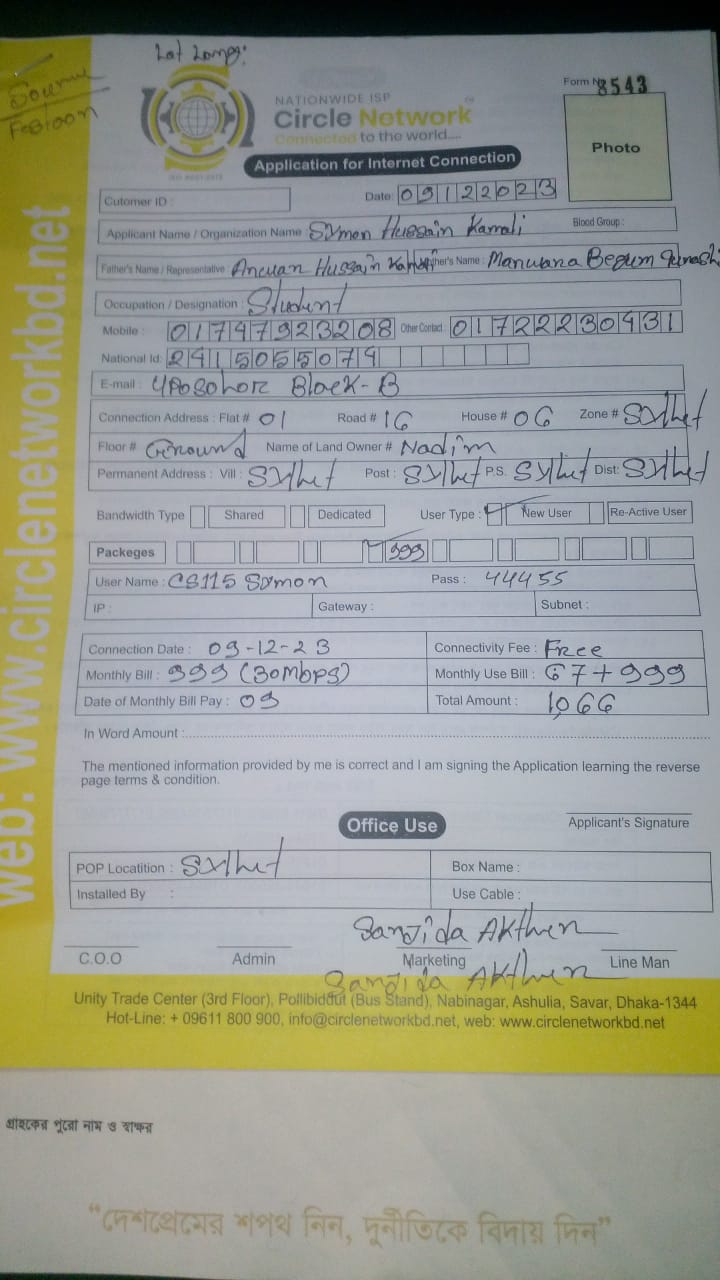 Lat Long:
Festoon
NATIONWIDE ISP
Circle Network
Connected to the world....
Form No 8543
Photo
Application for Internet Connection
Cutomer ID :
Date: 09122023
Applicant Name / Organization Name : Symon Hussain Kamali Blood Group :
Father's Name / Representative Hussain Mother's Name : Begum
Occupation / Designation : Student
Mobile : 01747923208 Other Contact: 01722230431
National Id: 2415055074
E-mail : Uposohor Block-B
Connection Address : Flat # 01 Road # 16 House # 06 Zone # Sylhet
Floor # Ground Name of Land Owner # Nadim
Permanent Address : Vill : Sylhet Post : Sylhet P.S. Sylhet Dist: Sylhet
Bandwidth Type Shared Dedicated User Type : New User Re-Active User
Packeges 999
User Name : CS115 Symon Pass : 44455
IP : Gateway : Subnet :
Connection Date : 09-12-23 Connectivity Fee : Free
Monthly Bill : 999 (30Mbps) Monthly Use Bill : 67+999
Date of Monthly Bill Pay : 09 Total Amount : 1,066
In Word Amount :
The mentioned information provided by me is correct and I am signing the Application learning the reverse
page terms & condition.
Applicant's Signature
Office Use
POP Locatition : Sylhet Box Name :
Installed By : Use Cable :
Sanjida Akther
C.O.O Admin Marketing Line Man
Sanjida Akther
Unity Trade Center (3rd Floor), Pollibiddut (Bus Stand), Nabinagar, Ashulia, Savar, Dhaka-1344
Hot-Line: + 09611 800 900, info@circlenetworkbd.net, web: www.circlenetworkbd.net
web: www.circlenetworkbd.net
গ্রাহকের পুরো নাম ও স্বাক্ষর
“দেশপ্রেমের শপথ নিন, দুর্নীতিকে বিদায় দিন”